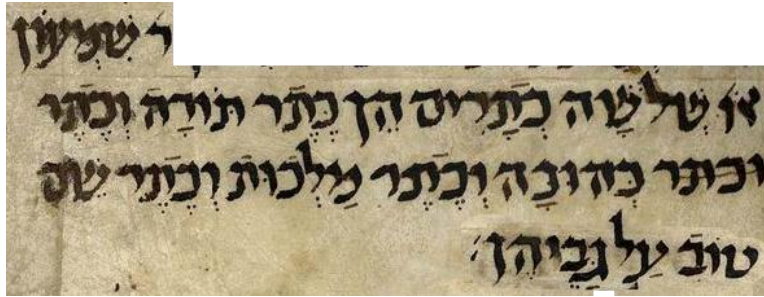 ר שמעון
או שלשה כתרים הן כתר תורה וכתר
וכתר כהונה וכתר מלכות וכתר שם
טוב על גביהן